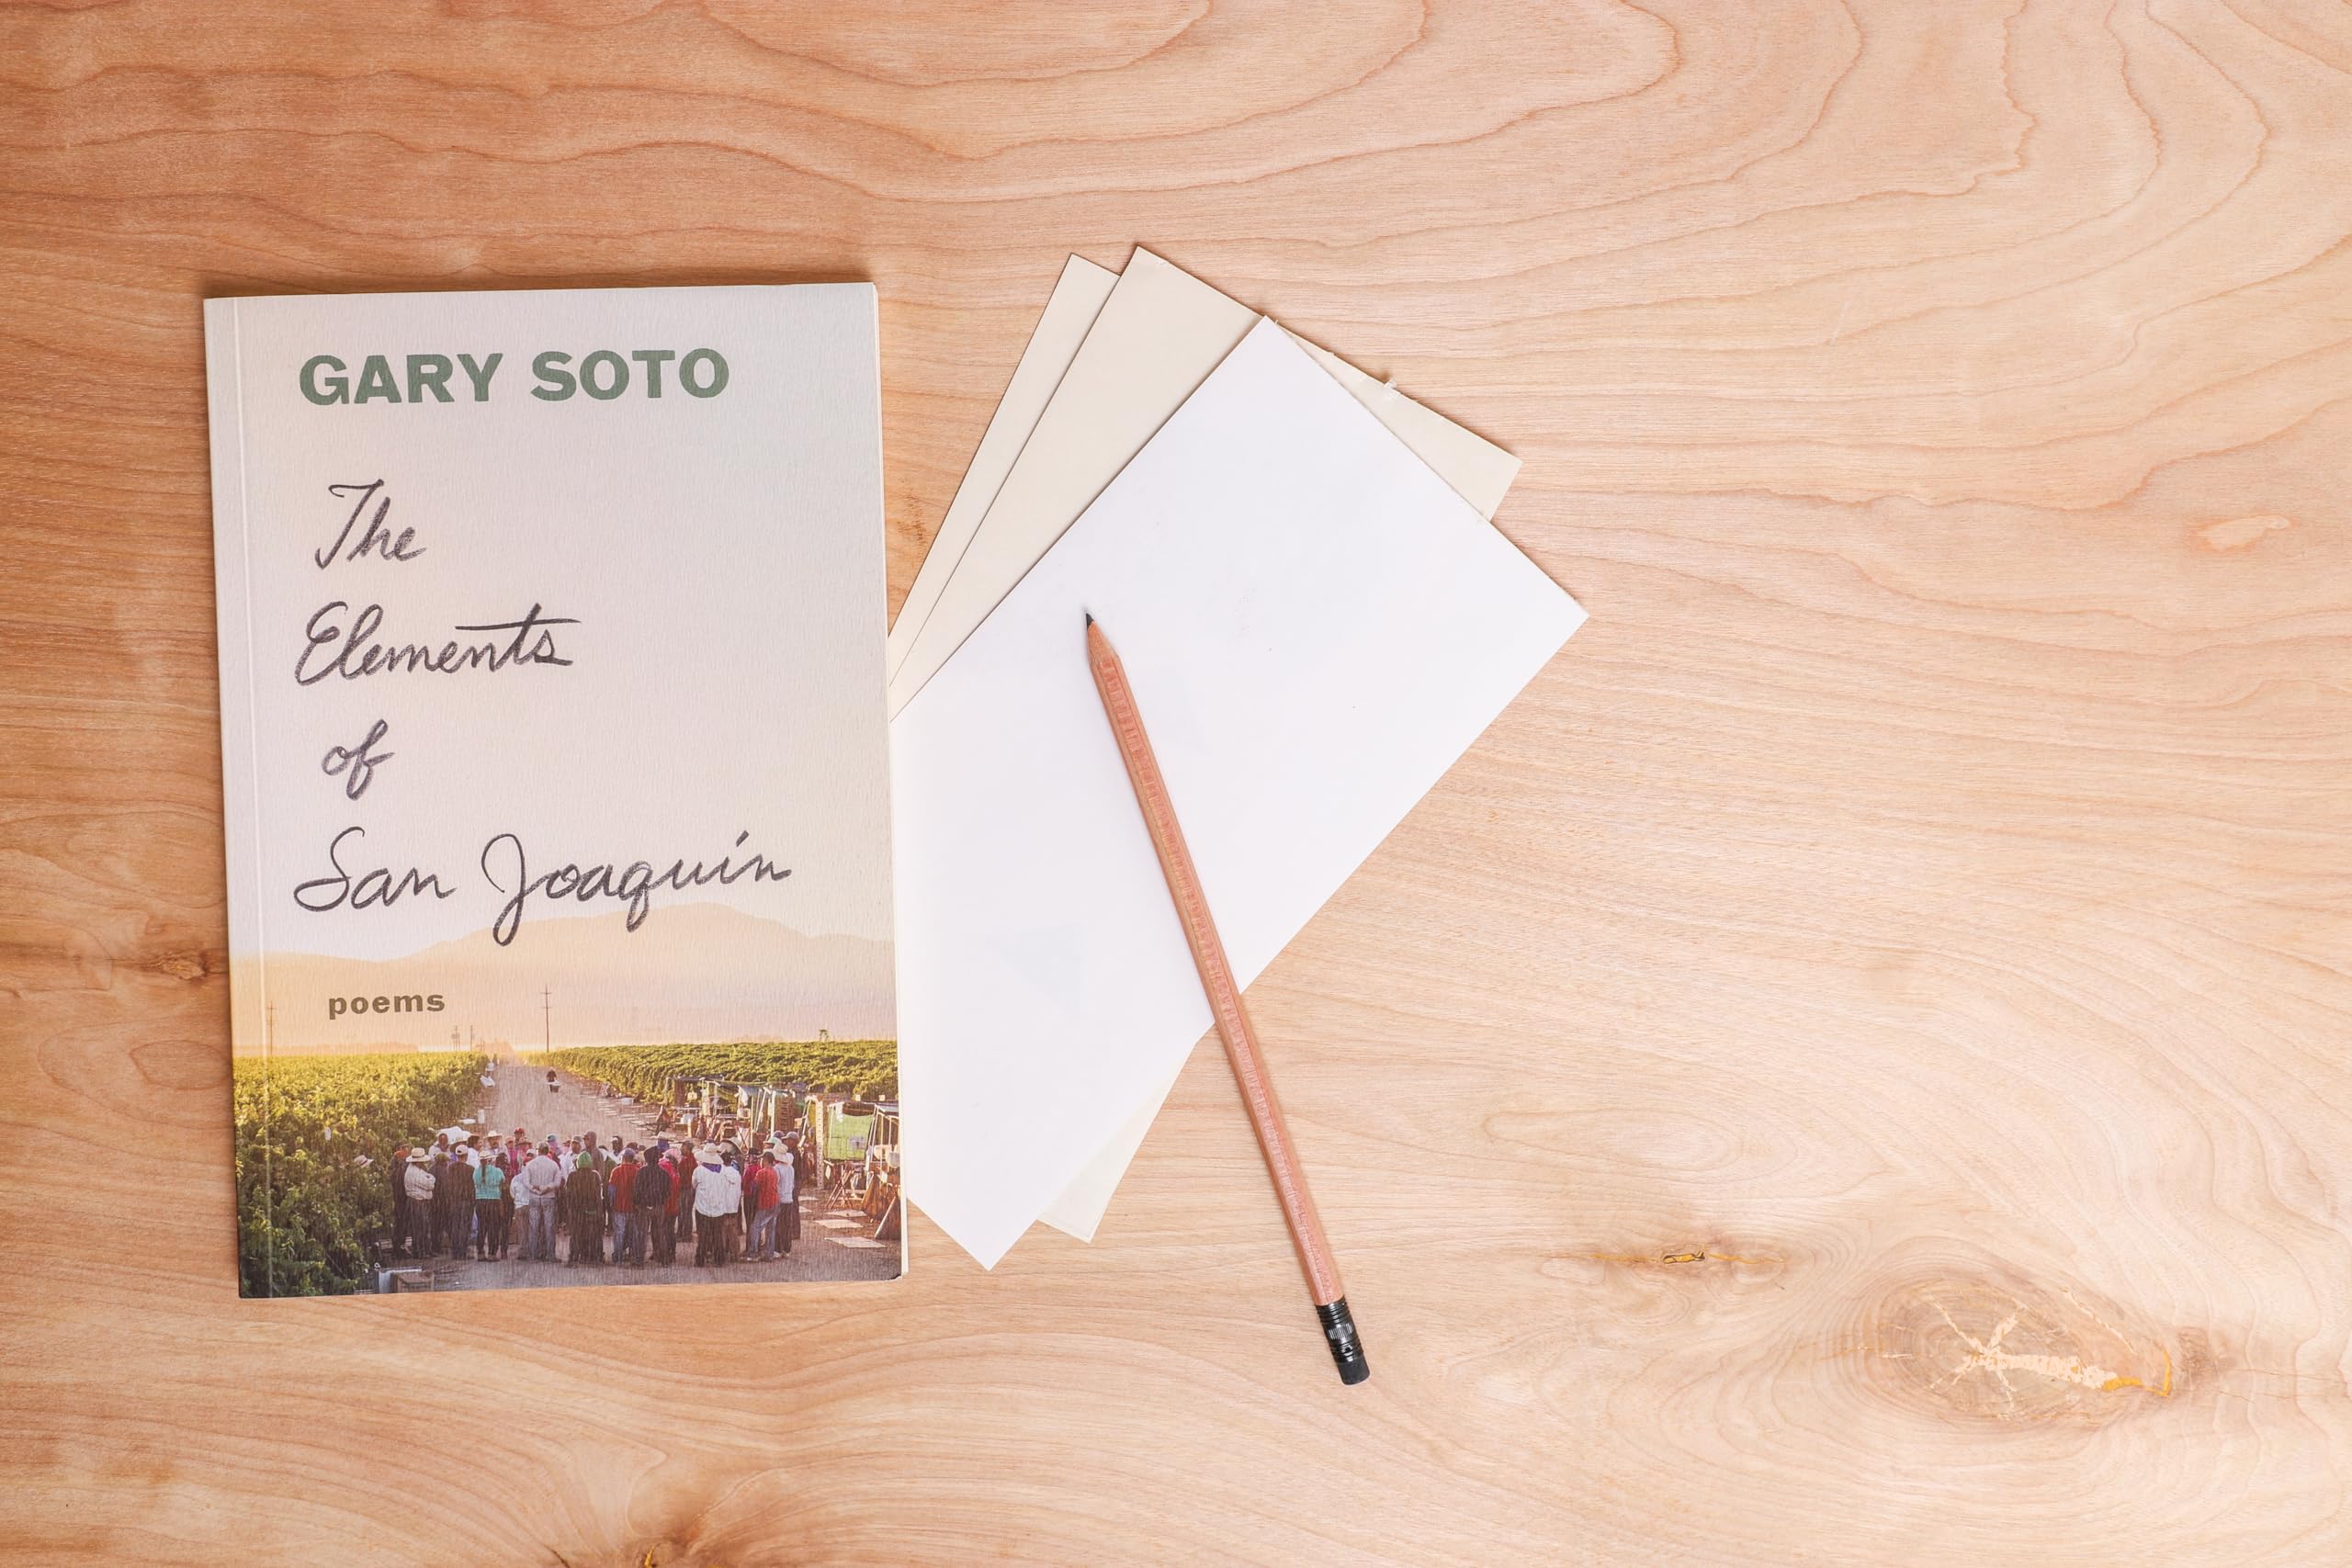 GARY SOTO
The
Elements
of
San Joaquin
poems